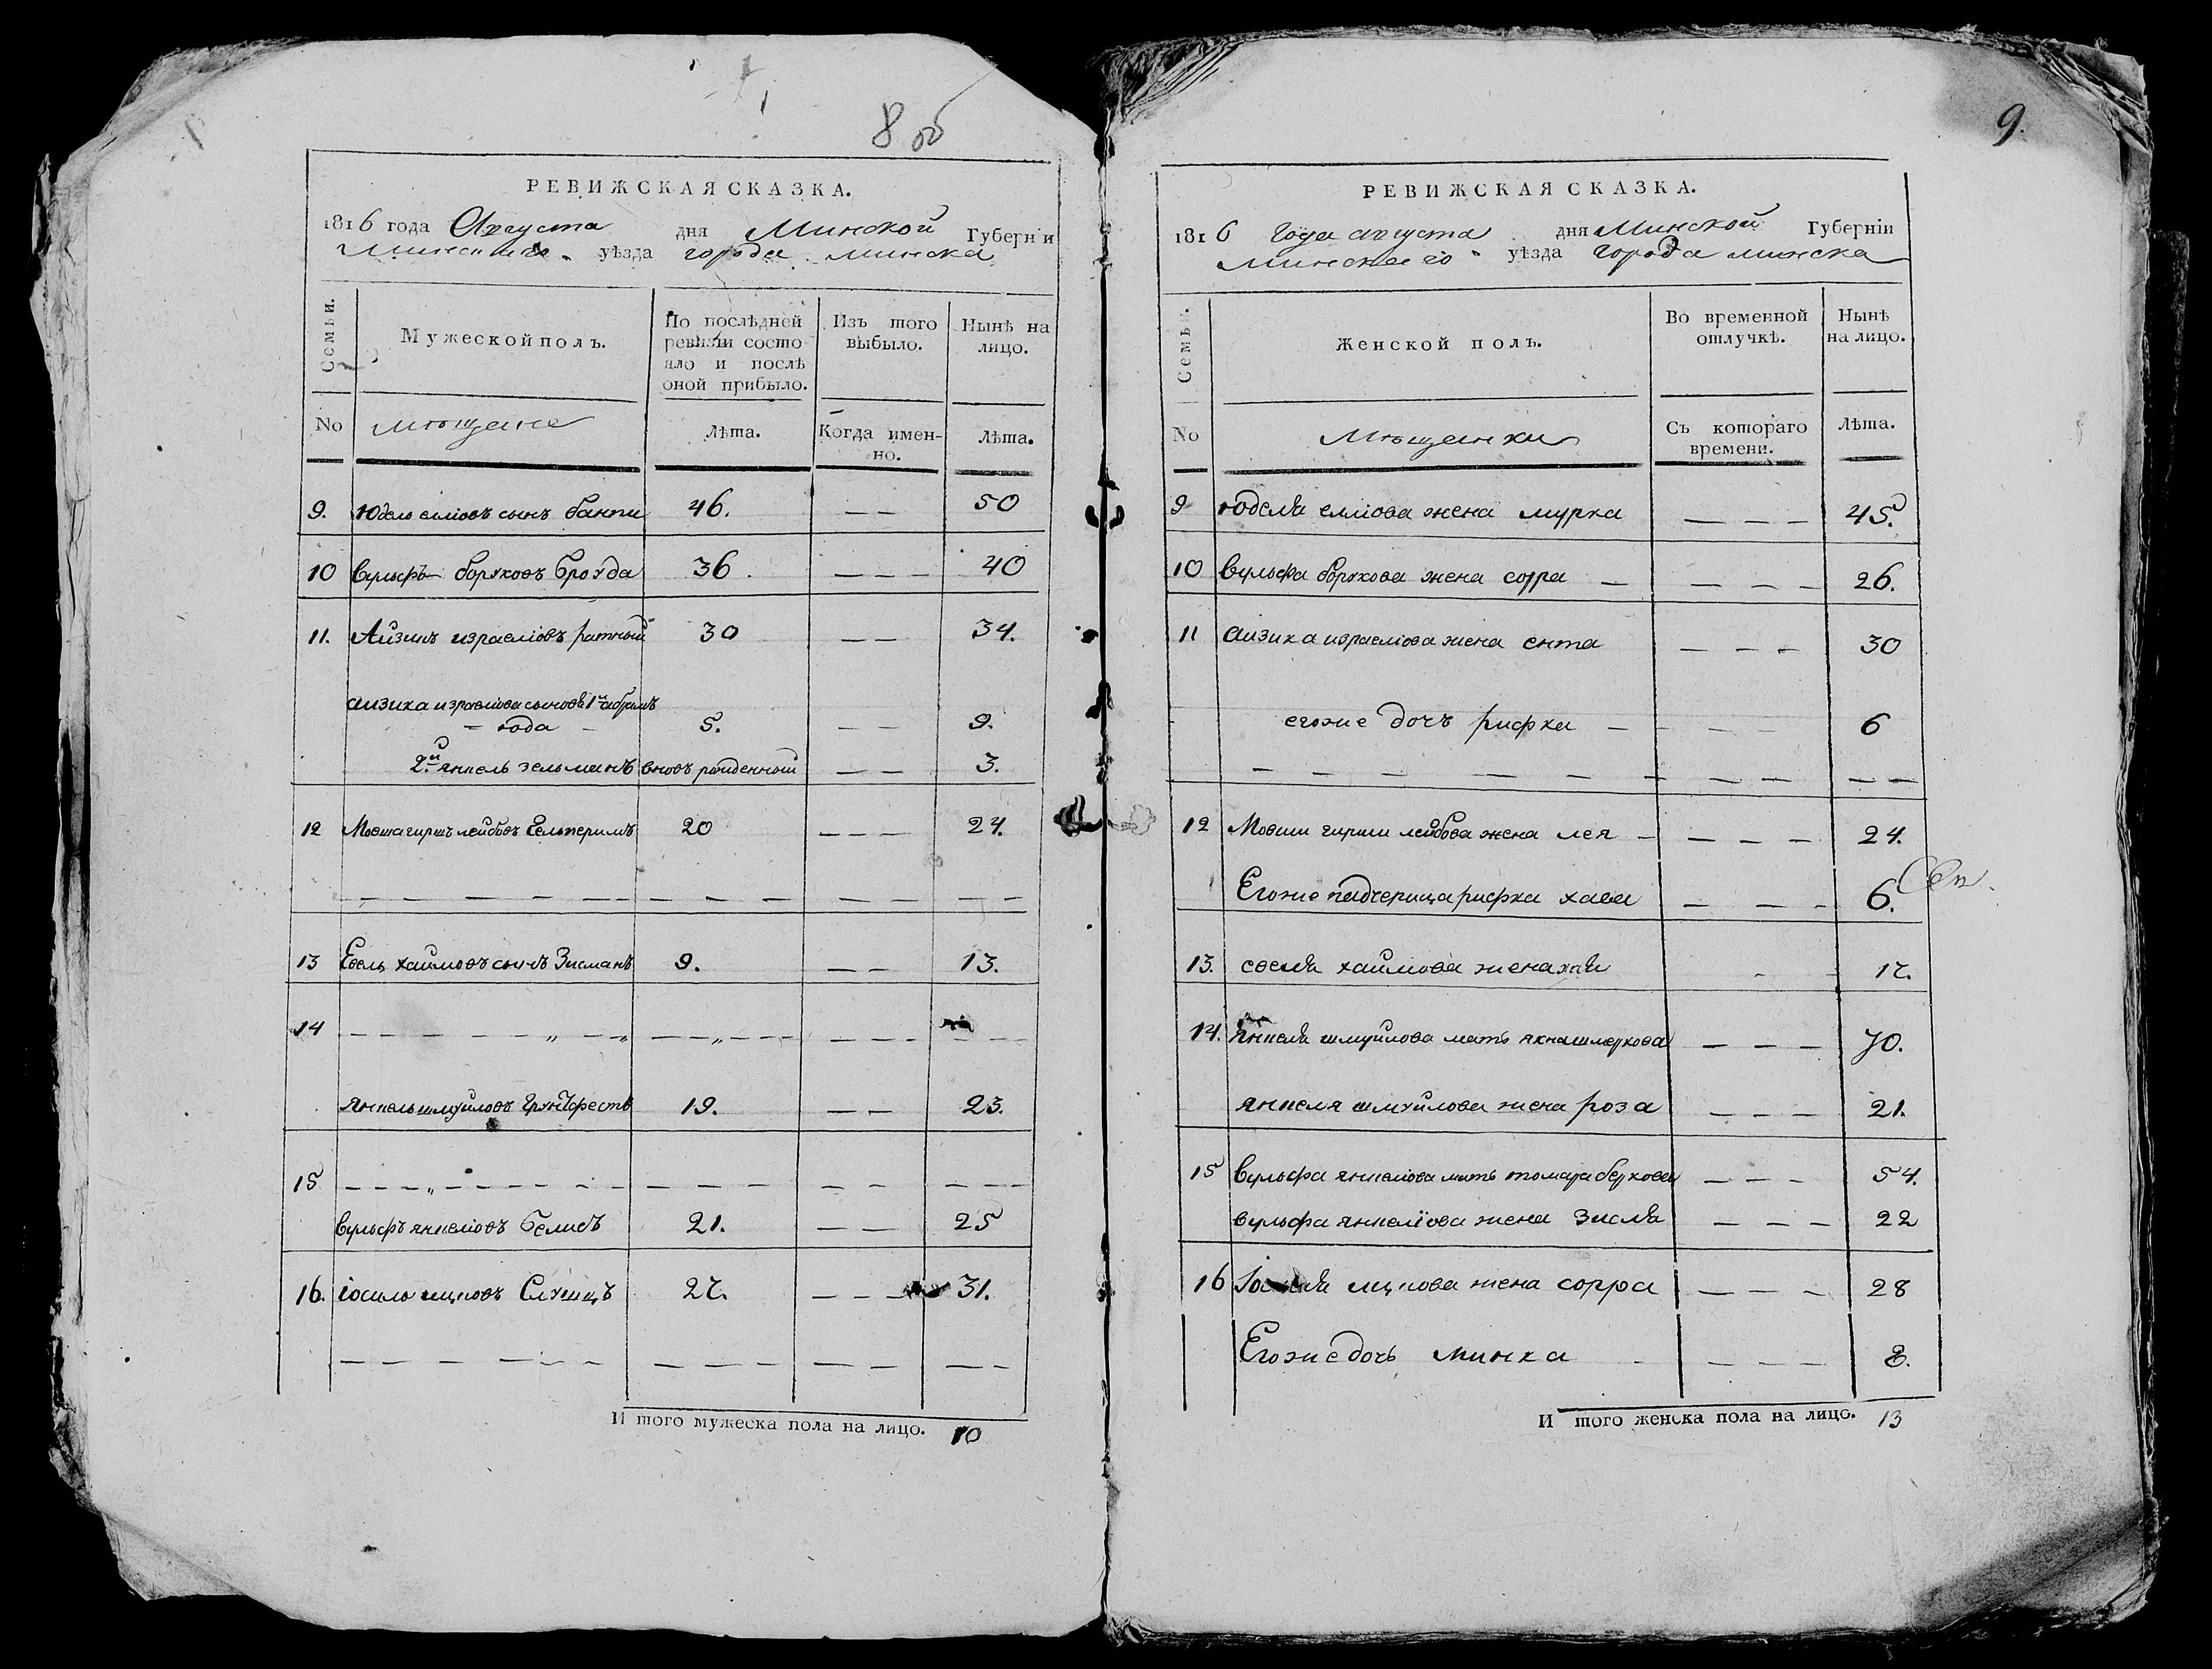 8 об
РЕВИЖСКАЯ СКАЗКА.
1816 года Августа дня Минской Губерніи
Минскаго уѣзда города Минска
Семьи.
Мужеской полъ.
По послѣдней ревизіи состояло и послѣ оной прибыло.
Изъ того выбыло.
Нынѣ на лицо.
No
мѣщане
Лѣта.
Когда именно.
Лѣта.
9. Юдель еліовъ сынъ 46. — — 50
10 Вульфъ боруховъ Броуда 36. — — — 40
11. Айзикъ израеліовъ ратный 30 — — 34.
аизика израеліова сыновя 1й абрамъ
— юда — 5. — — 9.
2.й янкель зельманъ вновь рожденный — — 3.
12 Мовша гиршъ лейбовъ Гельперимъ 20 — — — 24.
— — — — — — — — — — — — — — —
13 хаимовъ сынъ Зисманъ 9. — — 13.
14 — — — — „ — — „ — — „ — — — — — — — —
Янкель шмуйловъ 19. — — 23.
15 — — — „ — — — — — — — — — — — — — — —
Вульфъ янкеліовъ 21. — — 25
16. іосель ицковъ Слуцкъ 27. — — — 31.
— — — — — — — — — — — — — —
И того мужеска пола на лицо. 10
9.
РЕВИЖСКАЯ СКАЗКА.
1816 Года августа дня Минской Губерніи
Минскаго уѣзда города минска
Семьи.
Женской полъ.
Во временной отлучкѣ.
Нынѣ на лицо.
No
Мѣщанки
Съ котораго времени.
Лѣта.
9 юделя еліова жена мурка — — — 45.
10 Вульфа борухова жена сорра — — — — 26.
11 аизика израеліова жена ента — — — 30
егоже дочъ рифка — — — — 6
— — — — — — — — — — — —
12 Мовши гирши лейбова жена лея — — — — 24.
Егоже падчерица рифка хава — — — 6.
13. хаимова жена хая — — 17.
14. Янкеля шмуйлова мать шмеркова — — — 70.
янкеля шмуйлова жена роза — — — 21.
15 Вульфа янкеліова мать томара беркова — — — 54.
вульфа янкеліова жена Зисля — — — 22
16 ицкова жена сорра — — — 28
Егоже дочь минка — — — — 8.
И того женска пола на лицо. 13